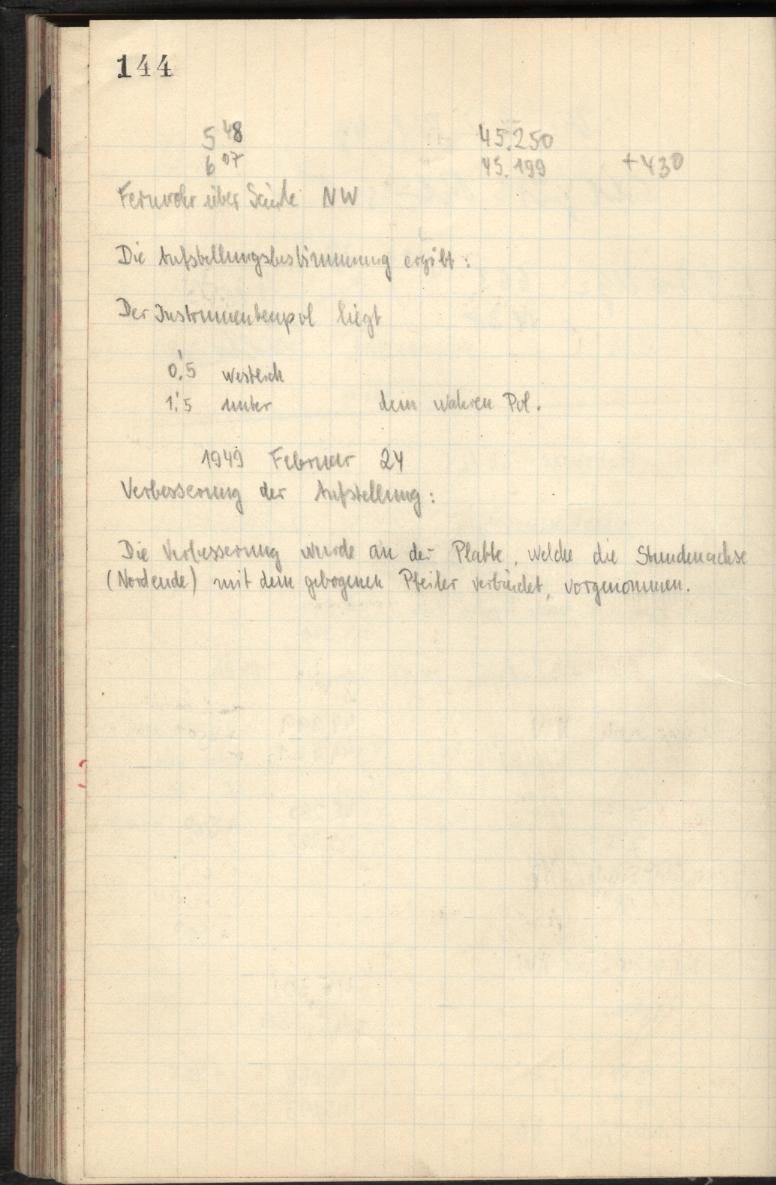 144
5 48 45.250
6 07 45.199 +430
Fernrohr über Säule NW
Die Aufstellungsbestimmung ergibt:
Der Instrumentenpol liegt
0,'5 westlich
1,'5 unter dem wahren Pol.
1949 Februar 24
Verbesserung der Aufstellung:
Die Verbesserung wurde an der Platte, welche die Stundenachse
(Nordende) mit dem gebogenen Pfeiler verbindet, vorgenommen.